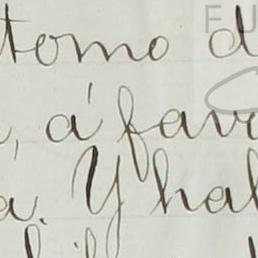 tomo d
, á favo
a. Y hal